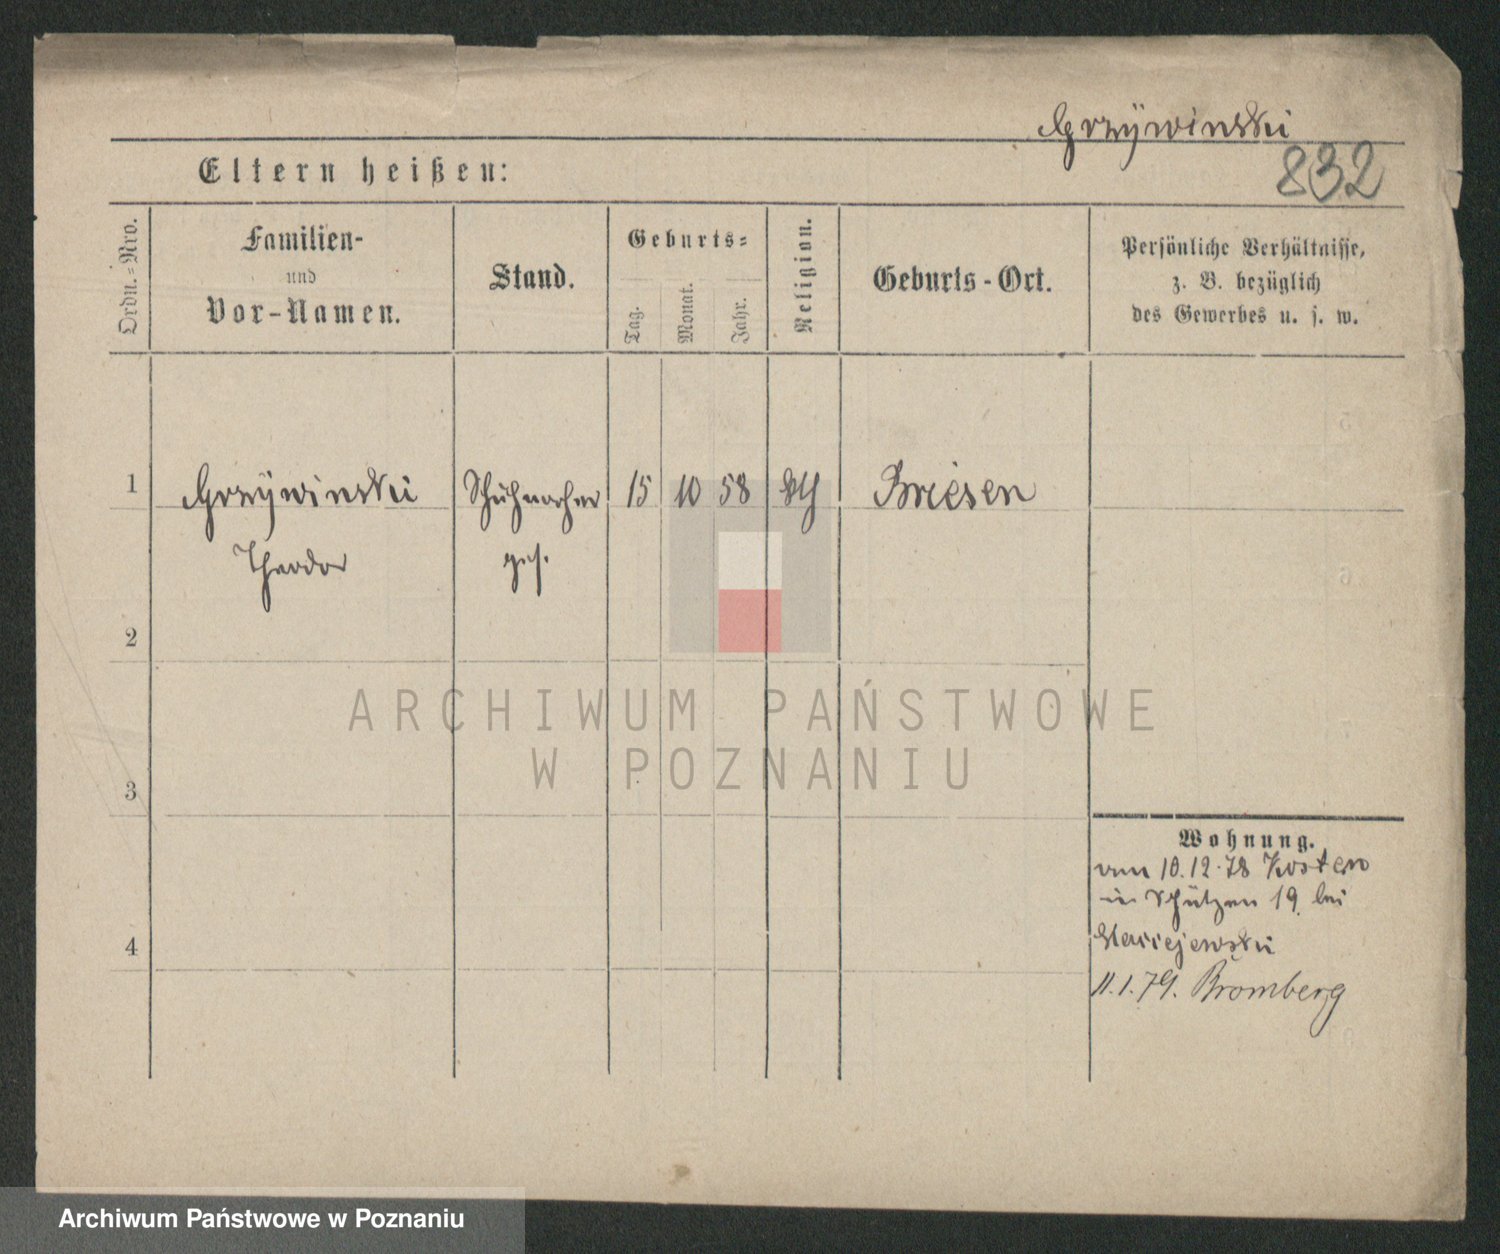 Grzywinski
832
Eltern heißen:
Ordn.-Nro.
Familien-
und
Vor-Namen.
Stand.
Geburts-
Tag.
Monat.
Jahr.
Religion.
Geburts-Ort.
Persönliche Verhältnisse,
z. B. bezüglich
des Gewerbes u. s. w.
1 Grzÿwinski Schuhmacher 15 10 58 Briesen
Theodor ges.
2
3
4
Wohnung.
vom 10.12.78 Kosten
in Schützen 19 bei
Maciejewski
11.1.79. Bromberg
ARCHIWUM PAŃSTWOWE
W POZNANIU
Archiwum Państwowe w Poznaniu